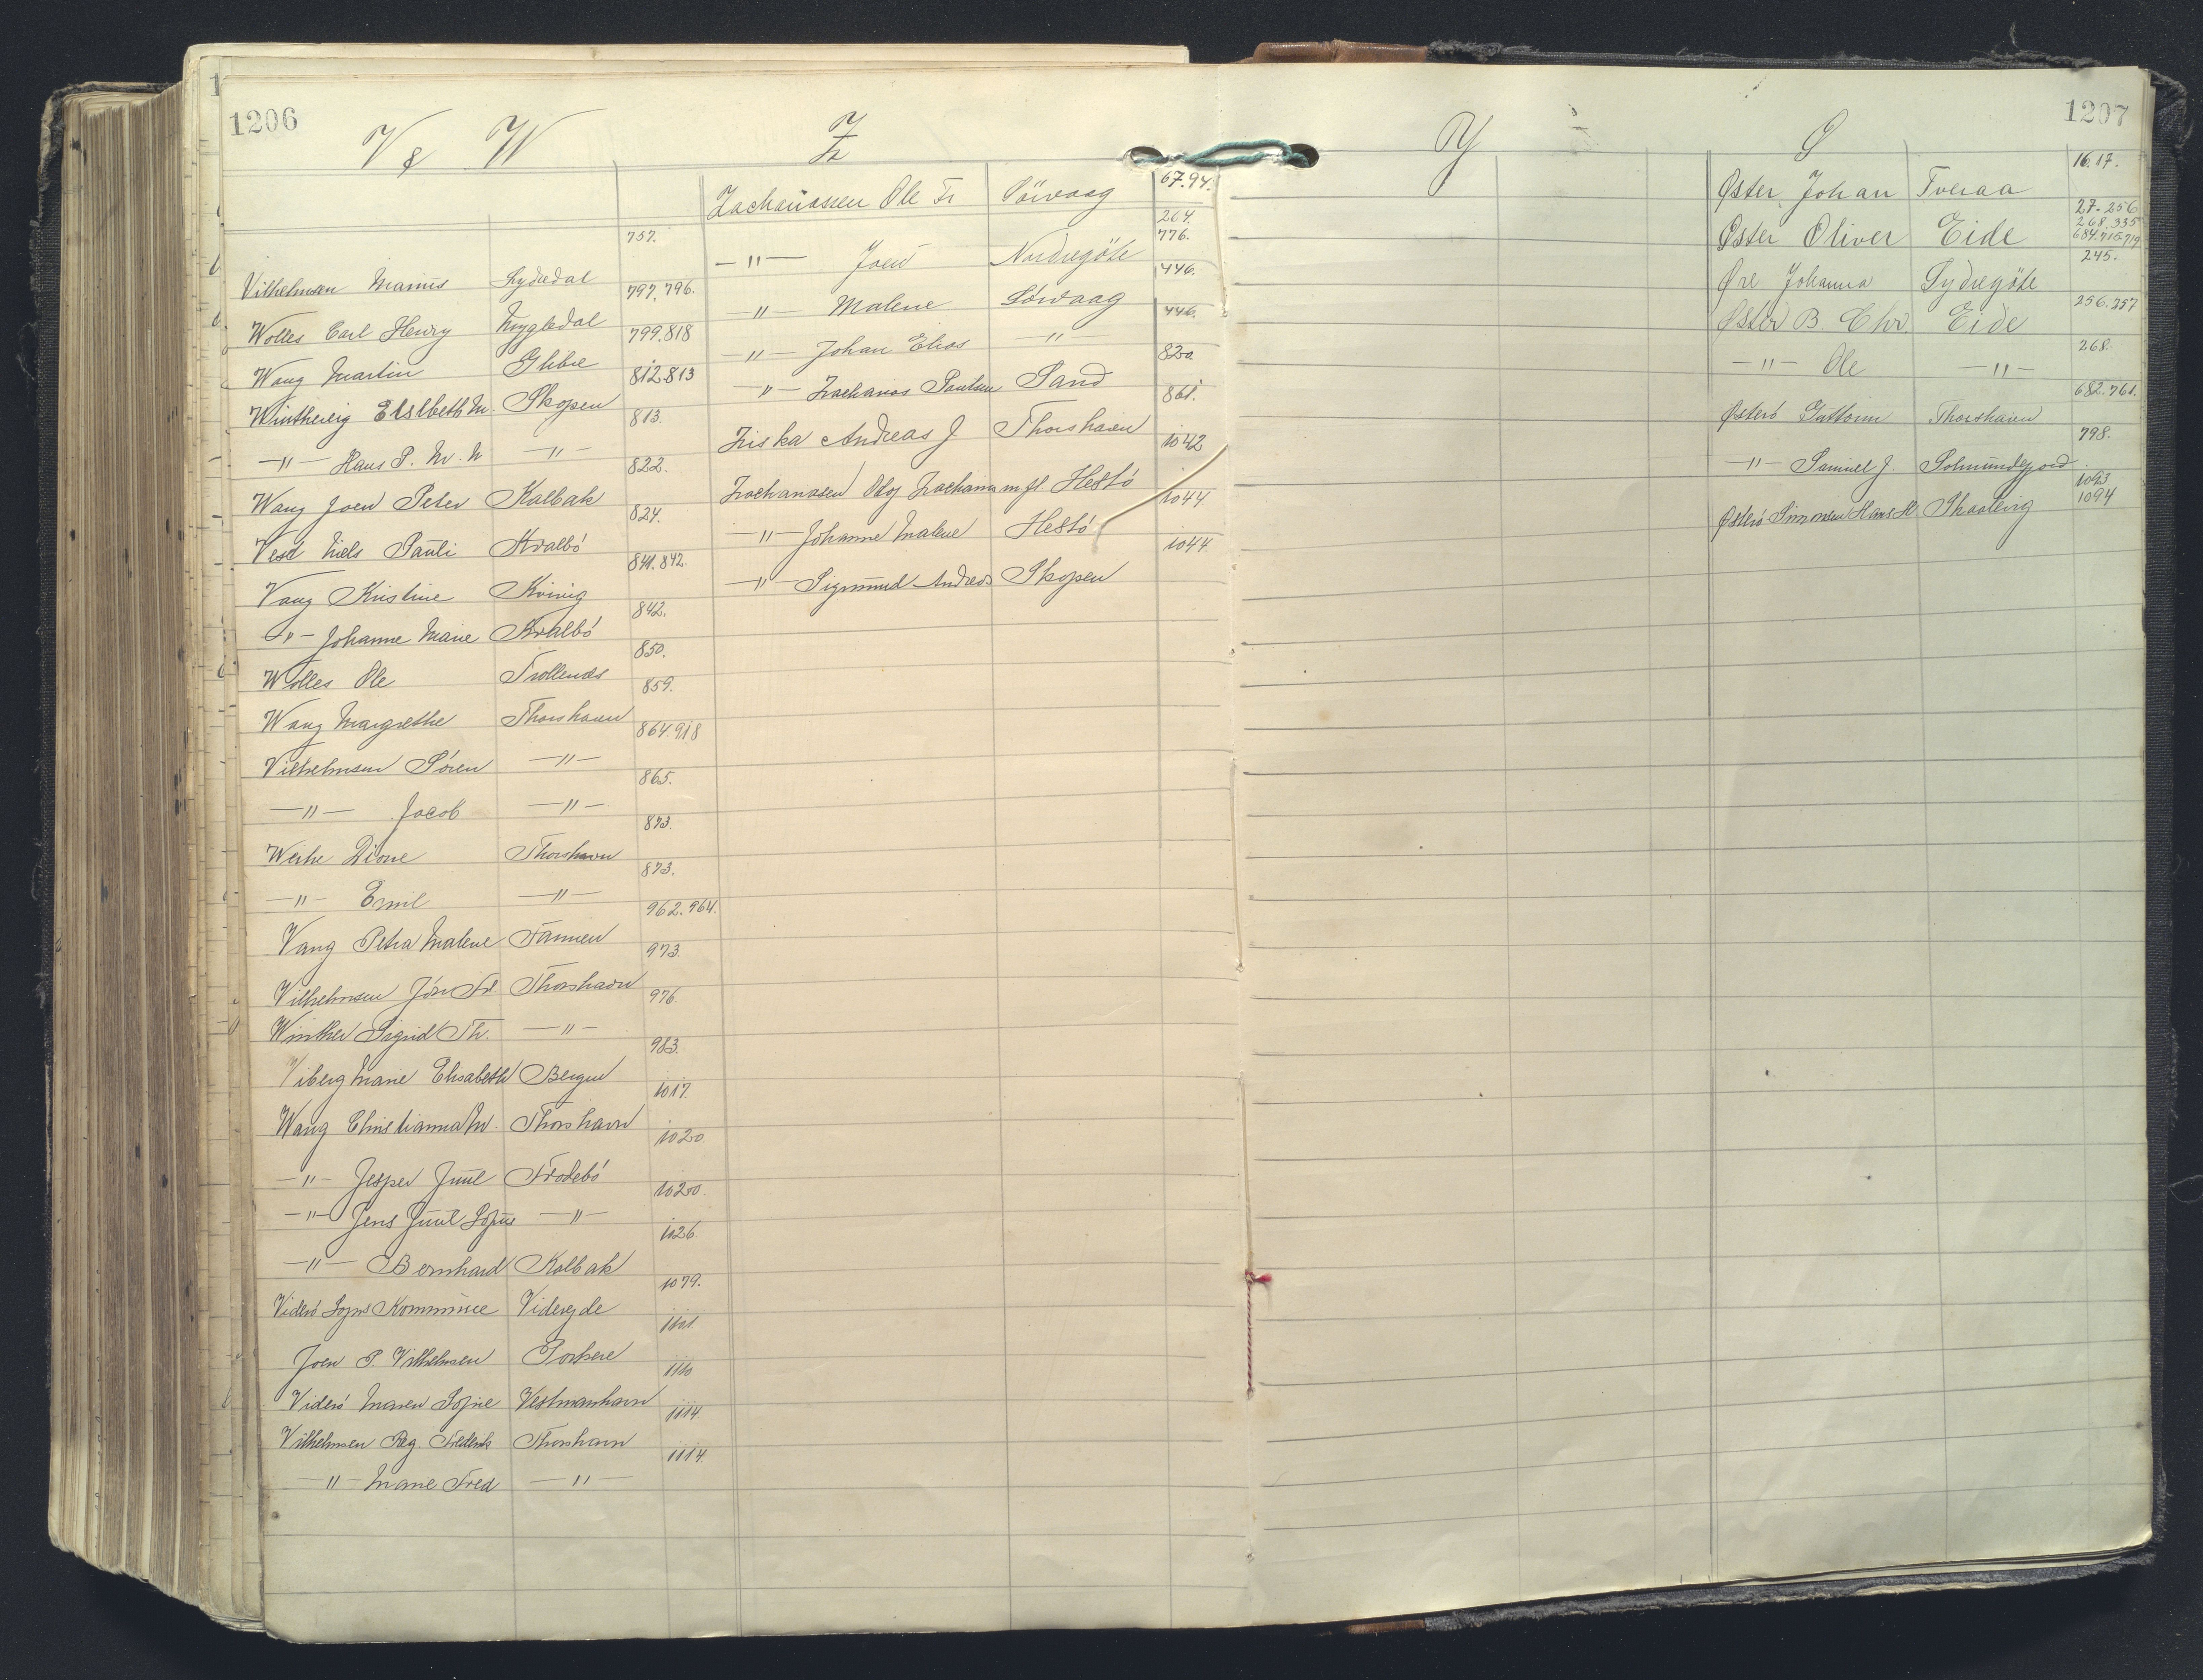 1206
V & W
Vilhelmsen Marius Sydredal 757.
Wolles Carl Henry Mygledal 797. 796.
Wang Martin Glibre 799. 818
Winthereig Elslbeth M. Skopen 812. 813
—"— Hans P. M. M —"— 813.
Wang Joen Peter Kolbak 822.
Vest Niels Pauli Kvalbö 824.
Vang Kristine Kvivig 841. 842.
—"— Johanne Marie Kvalbö 842.
Wolles Ole Trollenæs 850.
Wang Margrethe Thorshavn 859.
Vilhelmsen Sören —"— 864. 918
—"— Jacob —"— 865.
Weihe Dione Thorshavn 873.
—"— Emil —"— 873.
Vang Petra Malene Famien 962. 964.
Vilhelmsen Jón Fr. Thorshavn 973.
Winther Sigrid Th. —"— 976.
Viberg Marie Elisabeth Bergen 983.
Wang Christianna M. Thorshavn 1017.
—"— Jesper Juul Frodebö 1020.
—"— Jens Juul Sofus —"— 1020.
—"— Bernhard Kolbak 1126.
Viderö Sogns Kommune Viderejde 1079.
Joen P. Vilhelmsen Porkere 1101
Viderö Maren Sofie Vestmanhavn 1110
Vilhelmsen Reg. Frederik Thorshavn 1114.
—"— Marie Fred —"— 1114.
Z
Zachariassen Ole Fr Sörvaag 67. 94.
—"— Joen Nordregöte 264. 776.
—"— Malene Sörvaag 446.
—"— Johan Elias —"— 446.
—"— Zacharias Poulsen Sand 820.
Ziska Andreas J Thorshavn 861.
Zachariasen Oloj Zacharias m.fl. Hestö 1042
—"— Johanne Malene Hestö 1044
—"— Sigmund Andreas Skopen 1044.
1207
Y
Ø
Øster Johan Tveraa 16. 17.
Øster Oliver Eide 27. 256 268. 335 684. 716. 719
Øre Johanna Sydregöte 245.
Øster B. Chr. Eide 256. 257
—"— Ole —"— 268.
Østerö Guttorm Thorshavn 682. 761.
—"— Samuel J. Solmundefjord 798.
Østerö Simonsen Hans H Skaalevig 1093 1094